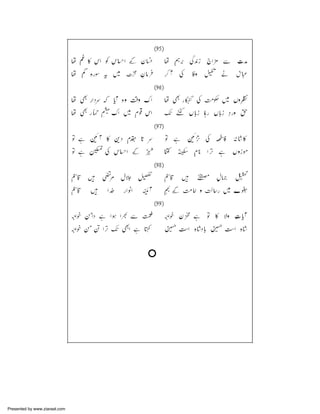 (95)
مدت سے مزاج زندگی برہم تھا انسان کے احساس کو اس کا غم تھا
عباسؑ نے تکمیل وفا کی آ کر فرمانِ محبت میں یہ سورہ کم تھا
(96)
نظروں میں حکومت کی گنہگار بھی تھا اک وقت وہ آیا کہ سردار بھی تھا
حق ورد زباں رہا زباں کٹنے تک اس قوم میں اک میثم تمار بھی تھا
(97)
کاشانۂ فاطمہ کی تزئین ہے تو سر تا بقدم دین کا آئین ہے تو
موزوں ہے ترا نام سکینہ کتنا شبیر کے احساس کی تسکین ہے تو
(98)
تکمیل جمال مصطفےٰ ہیں قائم تفصیل جلال مرتضیٰ ہیں قائم
جلوے ہیں رسالت و امامت کے بہم آئینہ انوار خدا ہیں قائم
(99)
آیات ولا کا تو ہے مخزن خواجہ عظمت سے بھرا ہوا ہے دامن خواجہ
شاہ است حسین بادشاہ است حسین کہتا ہے ابھی تک ترا تن من خواجہ
Presented by www.ziaraat.com